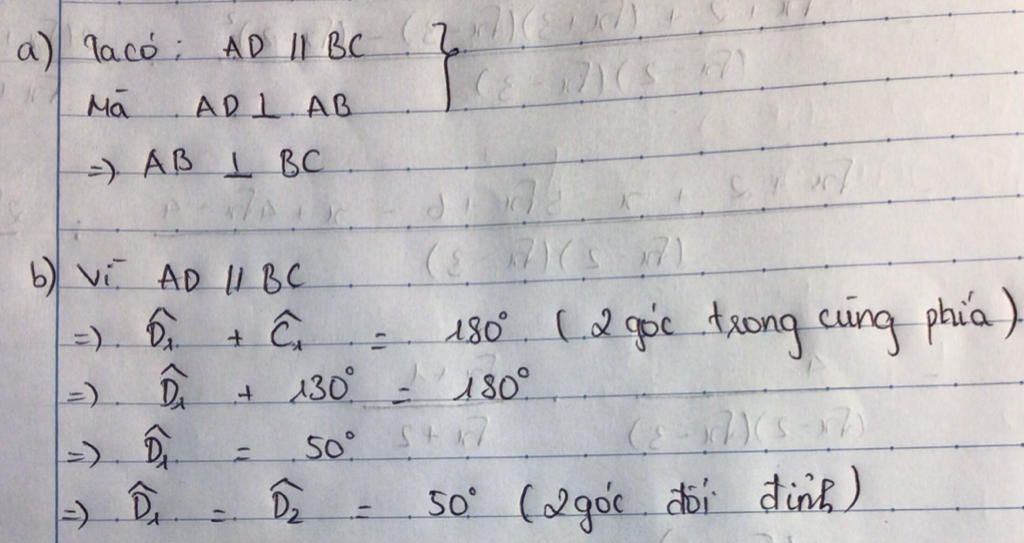 a) Ta có : AD // BC
Mà AD ⊥ AB
=> AB ⊥ BC
b) Vì AD // BC
=> D̂₁ + Ĉ₁ = 180° (2 góc trong cùng phía)
=> D̂₁ + 130° = 180°
=> D̂₁ = 50°
=> D̂₁ = D̂₂ = 50° (2 góc đối đỉnh)